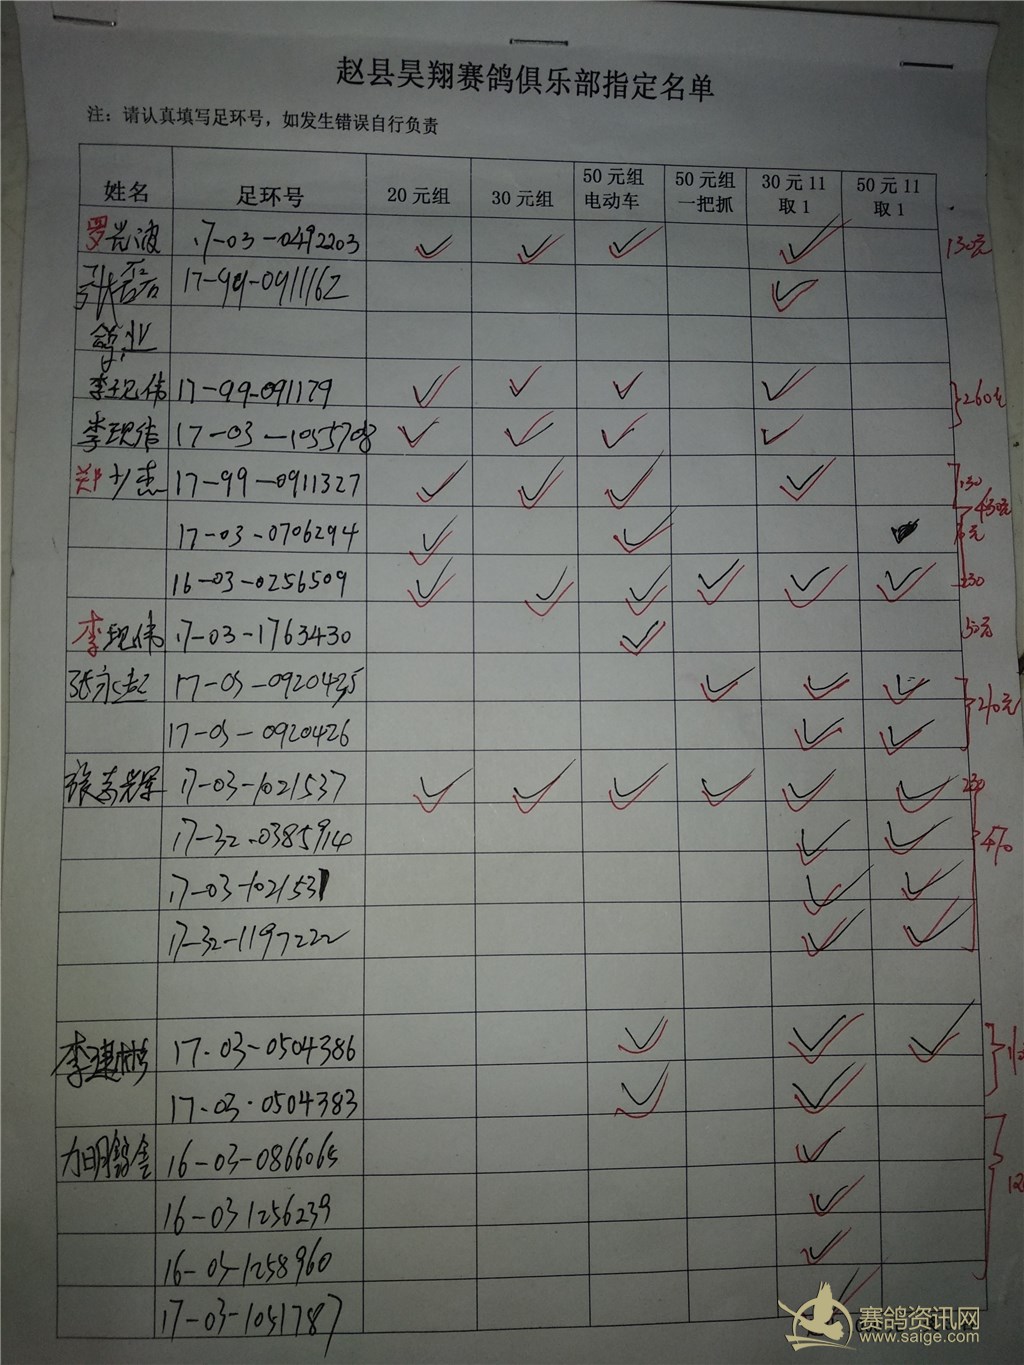 赵县昊翔赛鸽俱乐部指定名单
注：请认真填写足环号，如发生错误自行负责
姓名 足环号 20元组 30元组 50元组电动车 50元组一把抓 30元11取1 50元11取1
罗 波 17-03-0492203 ✓ ✓ ✓ ✓ 130元
17-99-0911162 ✓
鸽业
李现伟 17-99-091179 ✓ ✓ ✓ ✓ 260元
李现伟 17-03-1055708 ✓ ✓ ✓ ✓
郑少杰 17-99-0911327 ✓ ✓ ✓ ✓ 130
17-03-0706294 ✓ ✓
16-03-0256509 ✓ ✓ ✓ ✓ ✓ ✓ 230
李现伟 17-03-1763430 ✓ 50元
张永起 17-05-0920435 ✓ ✓ ✓ 210元
17-05-0920426 ✓ ✓
张 辉 17-03-1021537 ✓ ✓ ✓ ✓ ✓ ✓ 230
17-32-0385914 ✓ ✓ 470
17-03-1021531 ✓ ✓
17-32-1197222 ✓ ✓
李建彬 17-03-0504386 ✓ ✓ ✓
17-03-0504383 ✓ ✓
力明鸽舍 16-03-0866065 ✓
16-03 1256239 ✓
16-03-1258960 ✓
17-03-1051787
赛鸽资讯网
www.saige.com